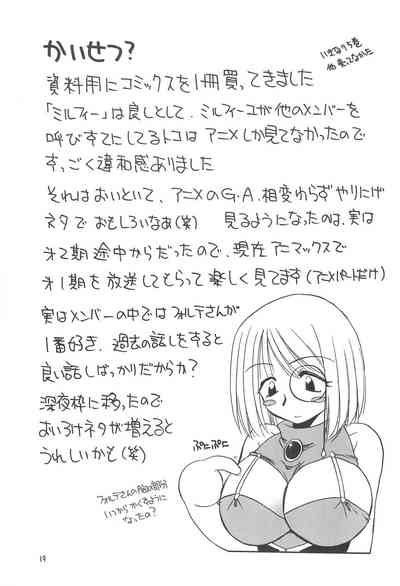 かいせつ?
いきなり5巻
他売ってなかった
資料用にコミックスを1冊買ってきました
「ミルフィー」は良しとして、ミルフィーユが他のメンバーを
呼びすてにしてるトコは アニメしか見てなかったので
すっごく違和感ありました
それはおいといて、アニメのG.A.相変わらずやりにげ
ネタで おもしろいなあ(笑) 見るようになったのは、実は
オ2期 途中からだったので、現在 アニマックスで
オ1期を放送してもらって楽しく見てます(アニメパートだけ)
実はメンバーの中ではフォルテさんが
1番好き、過去の話しをすると
良い話しばっかりだからか?
深夜枠に移ったので
おいろけネタが増えると
うれしいかと(笑)
ぷにぷに
フォルテさんの
いつからかくるように
なったの?
19